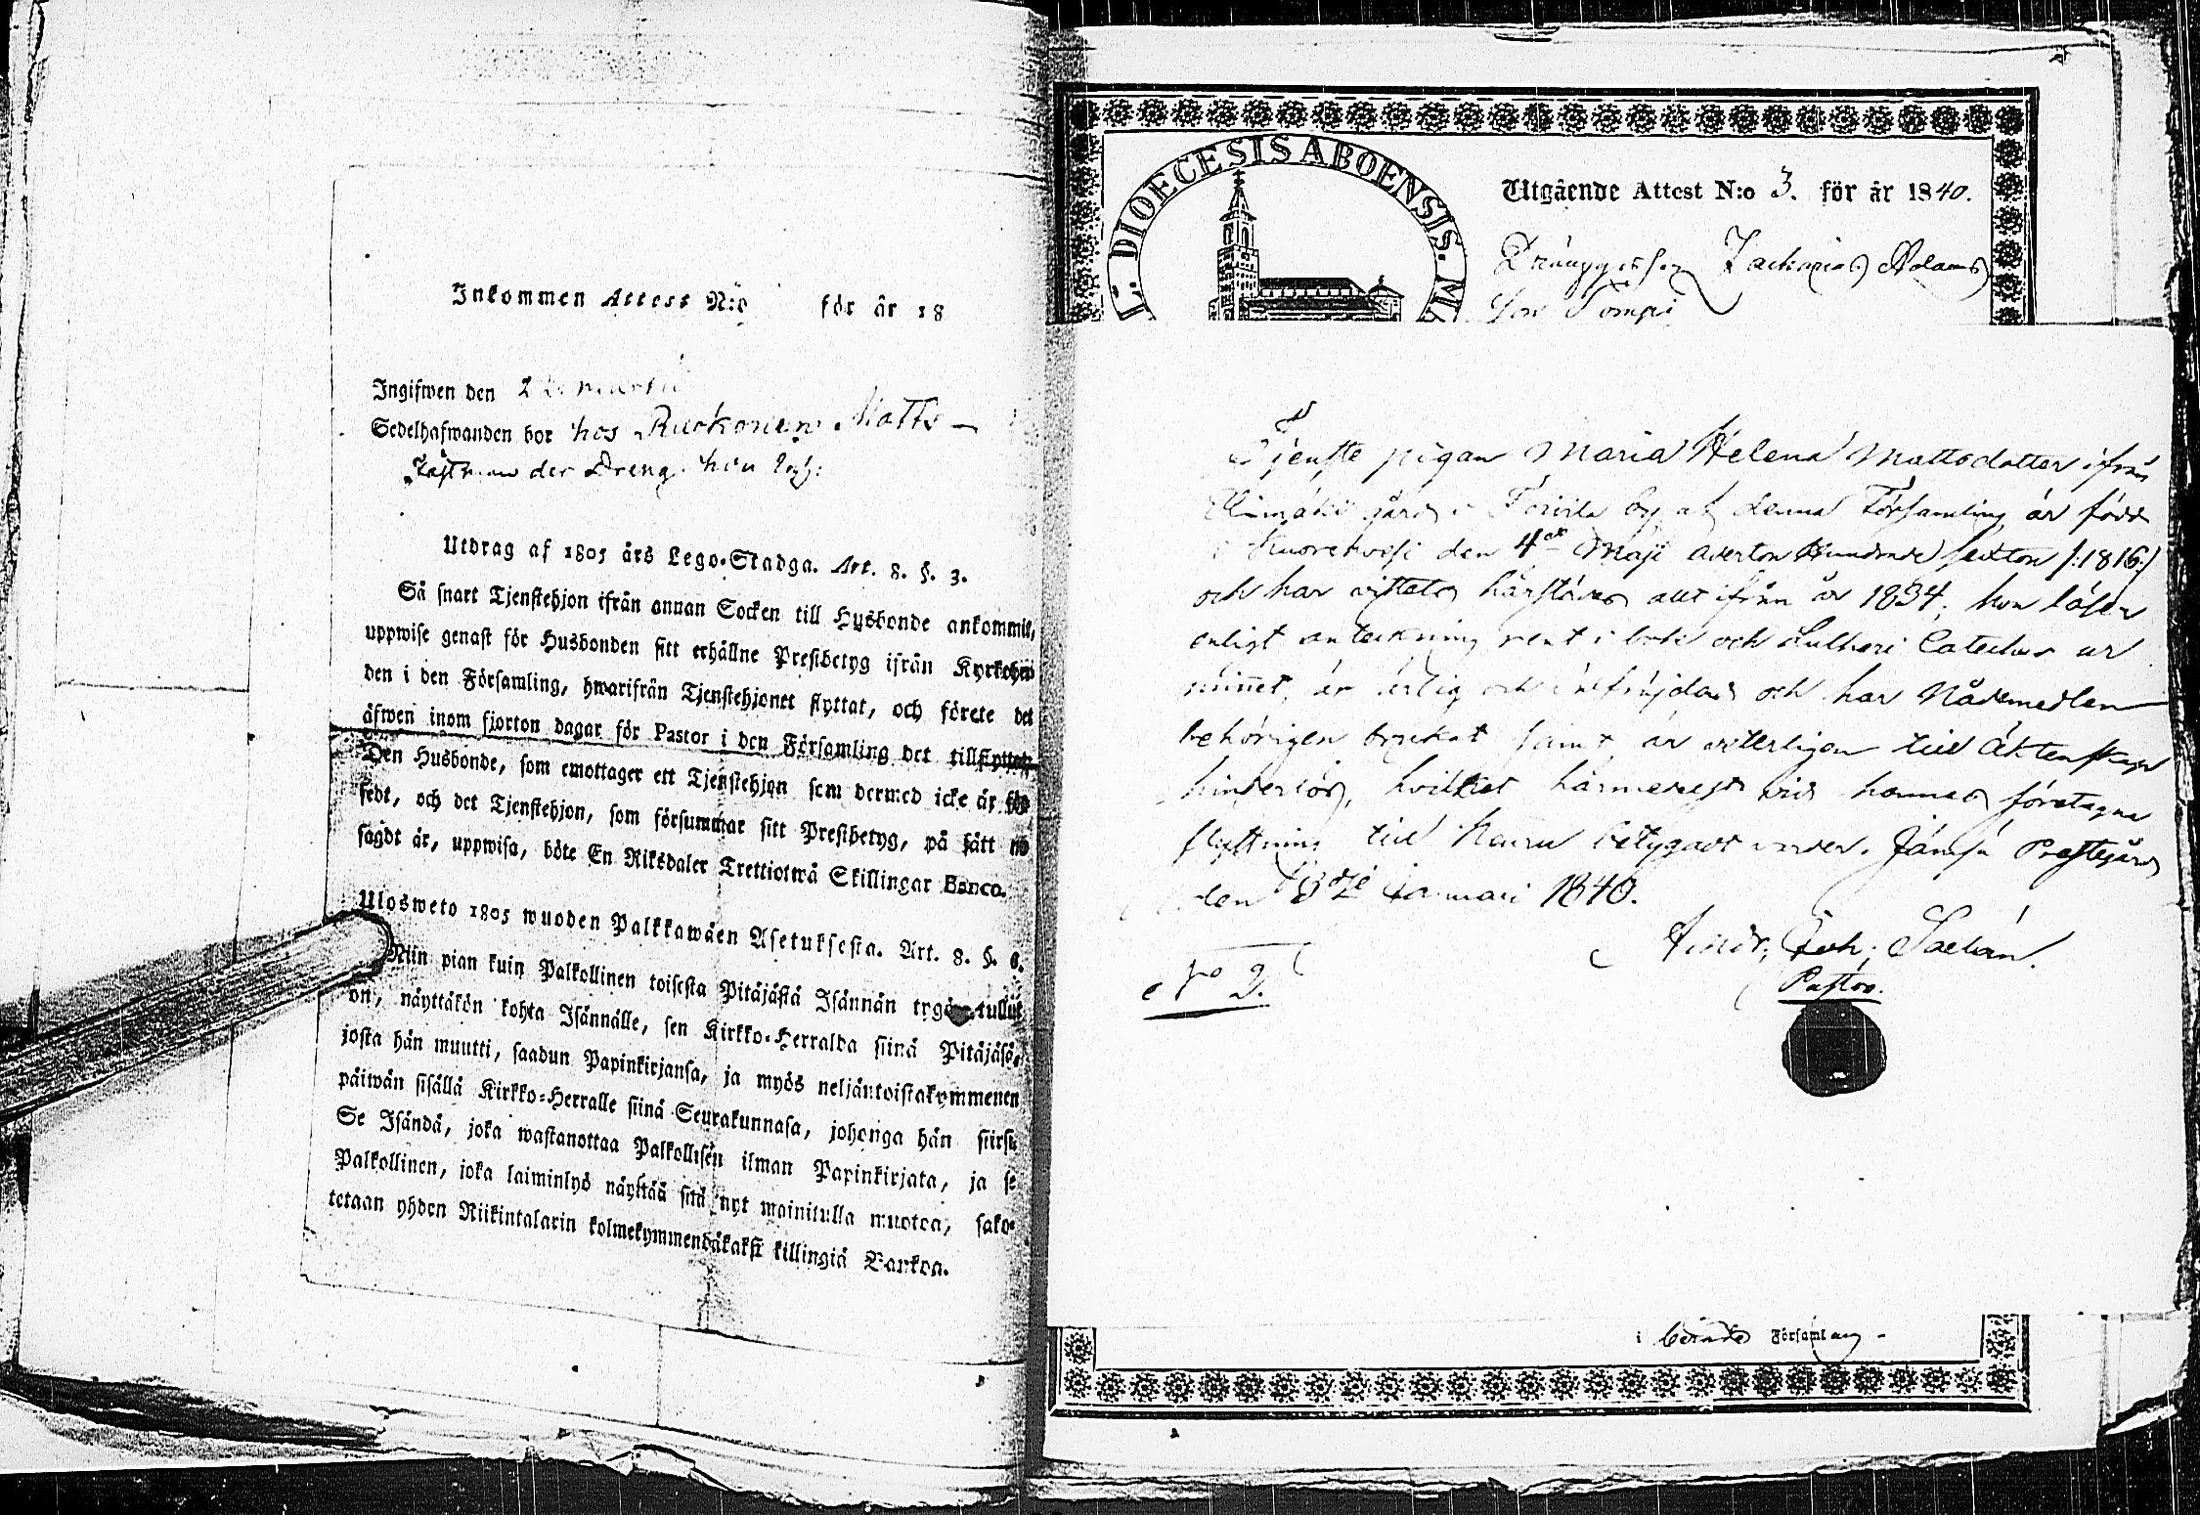 Inkommen Attest N:o för år 18
Ingifwen den 2 martii
Sedelhafwanden bor hos Ruokonen Matts
der Dreng hon
Utdrag af 1805 års Lego-Stadga. Art. 8. §. 3.
Så snart Tjenstehjon ifrån annan Socken till Husbonde ankommit,
uppwise genast för Husbonden sitt erhållne Prestbetyg ifrån Kyrkoher
den i den Församling, hwarifrån Tjenstehjonet flyttat, och förete det
äfwen inom fjorton dagar för Pastor i den Församling det tillflyttat
Den Husbonde, som emottager ett Tjenstehjon som dermed icke är för
sedt, och det Tjenstehjon, som försummar sitt Prestbetyg, på sätt nu
sagdt är, uppwisa, böte En Riksdaler Trettiotwå Skillingar Banco.
Ulosweto 1805 wuoden Palkkawäen Asetuksesta. Art. 8. §.
Niin pian kuin Palkollinen toisesta Pitäjästä Isännän tygö tullut
on, näyttäkön kohta Isännälle, sen Kirkko-Herralda siinä Pitäjäsä,
josta hän muutti, saadun Papinkirjansa, ja myös neljäntoistakymmenen
päiwän sisällä Kirkko-Herralle siinä Seurakunnasa, johonga hän siirsi
Se Isändä, joka wastanottaa Palkollisen ilman Papinkirjata, ja se
Palkollinen, joka laiminlyö näyttää sitä nyt mainitulla muotoa, sako-
tetaan yhden Riikintalarin kolmekymmendäkaksi killingiä Bankoa.
DIOECESIS ABOENSIS. M
Utgående Attest N:o 3. för år 1840.
Zacharias Adams
Son Tompi
Tjenste pigan Maria Helena Mattsdotter ifrån
gård i by af denna Församling är född
i Kuorewesi den 4de Maji aderton Hundrade sexton /:1816:/
och har vistats härstädes allt ifrån år 1834, hon läser
enligt anteckning rent i bok och Lutheri Cateches ur
minnet, är ärlig och och har Nådemedlen
behörigen brukat samt är witterligen till Äktenskap
hinderlös, hvilket härmedelst vid hennes företagna
flyttning till Keuru betygadt varder. Jämsä Prestegård
den 13de Januari 1840.
Pastor.
No 2.
i Församling